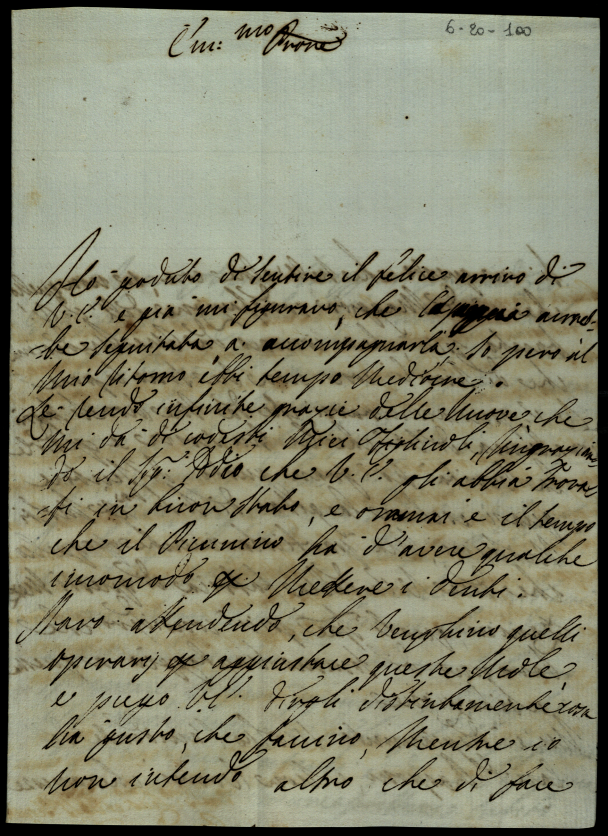 6-20-100
Em:mo Prone
Ho goduto di sentire il felice arrivo di
V.E. e già mi figuravo, che avreb-
-be seguitata a accompagnarla. Io però al
mio ritorno ebbi tempo
Le rendo infinite grazie delle nuove che
mi dà di codesti figlioli,
do il Sig. Iddio che V.E. gli abbia trova-
-ti in buon stato, e ormai è il tempo
che il Piccinino ha d'avere qualche
incomodo p mettere i denti.
Starò attendendo, che venghino quelli
operarij p aggiustare queste Mole
e prego V.E. dirgli distintamente cosa
ha gusto, che faccino, mentre io
non intendo altro che di fare